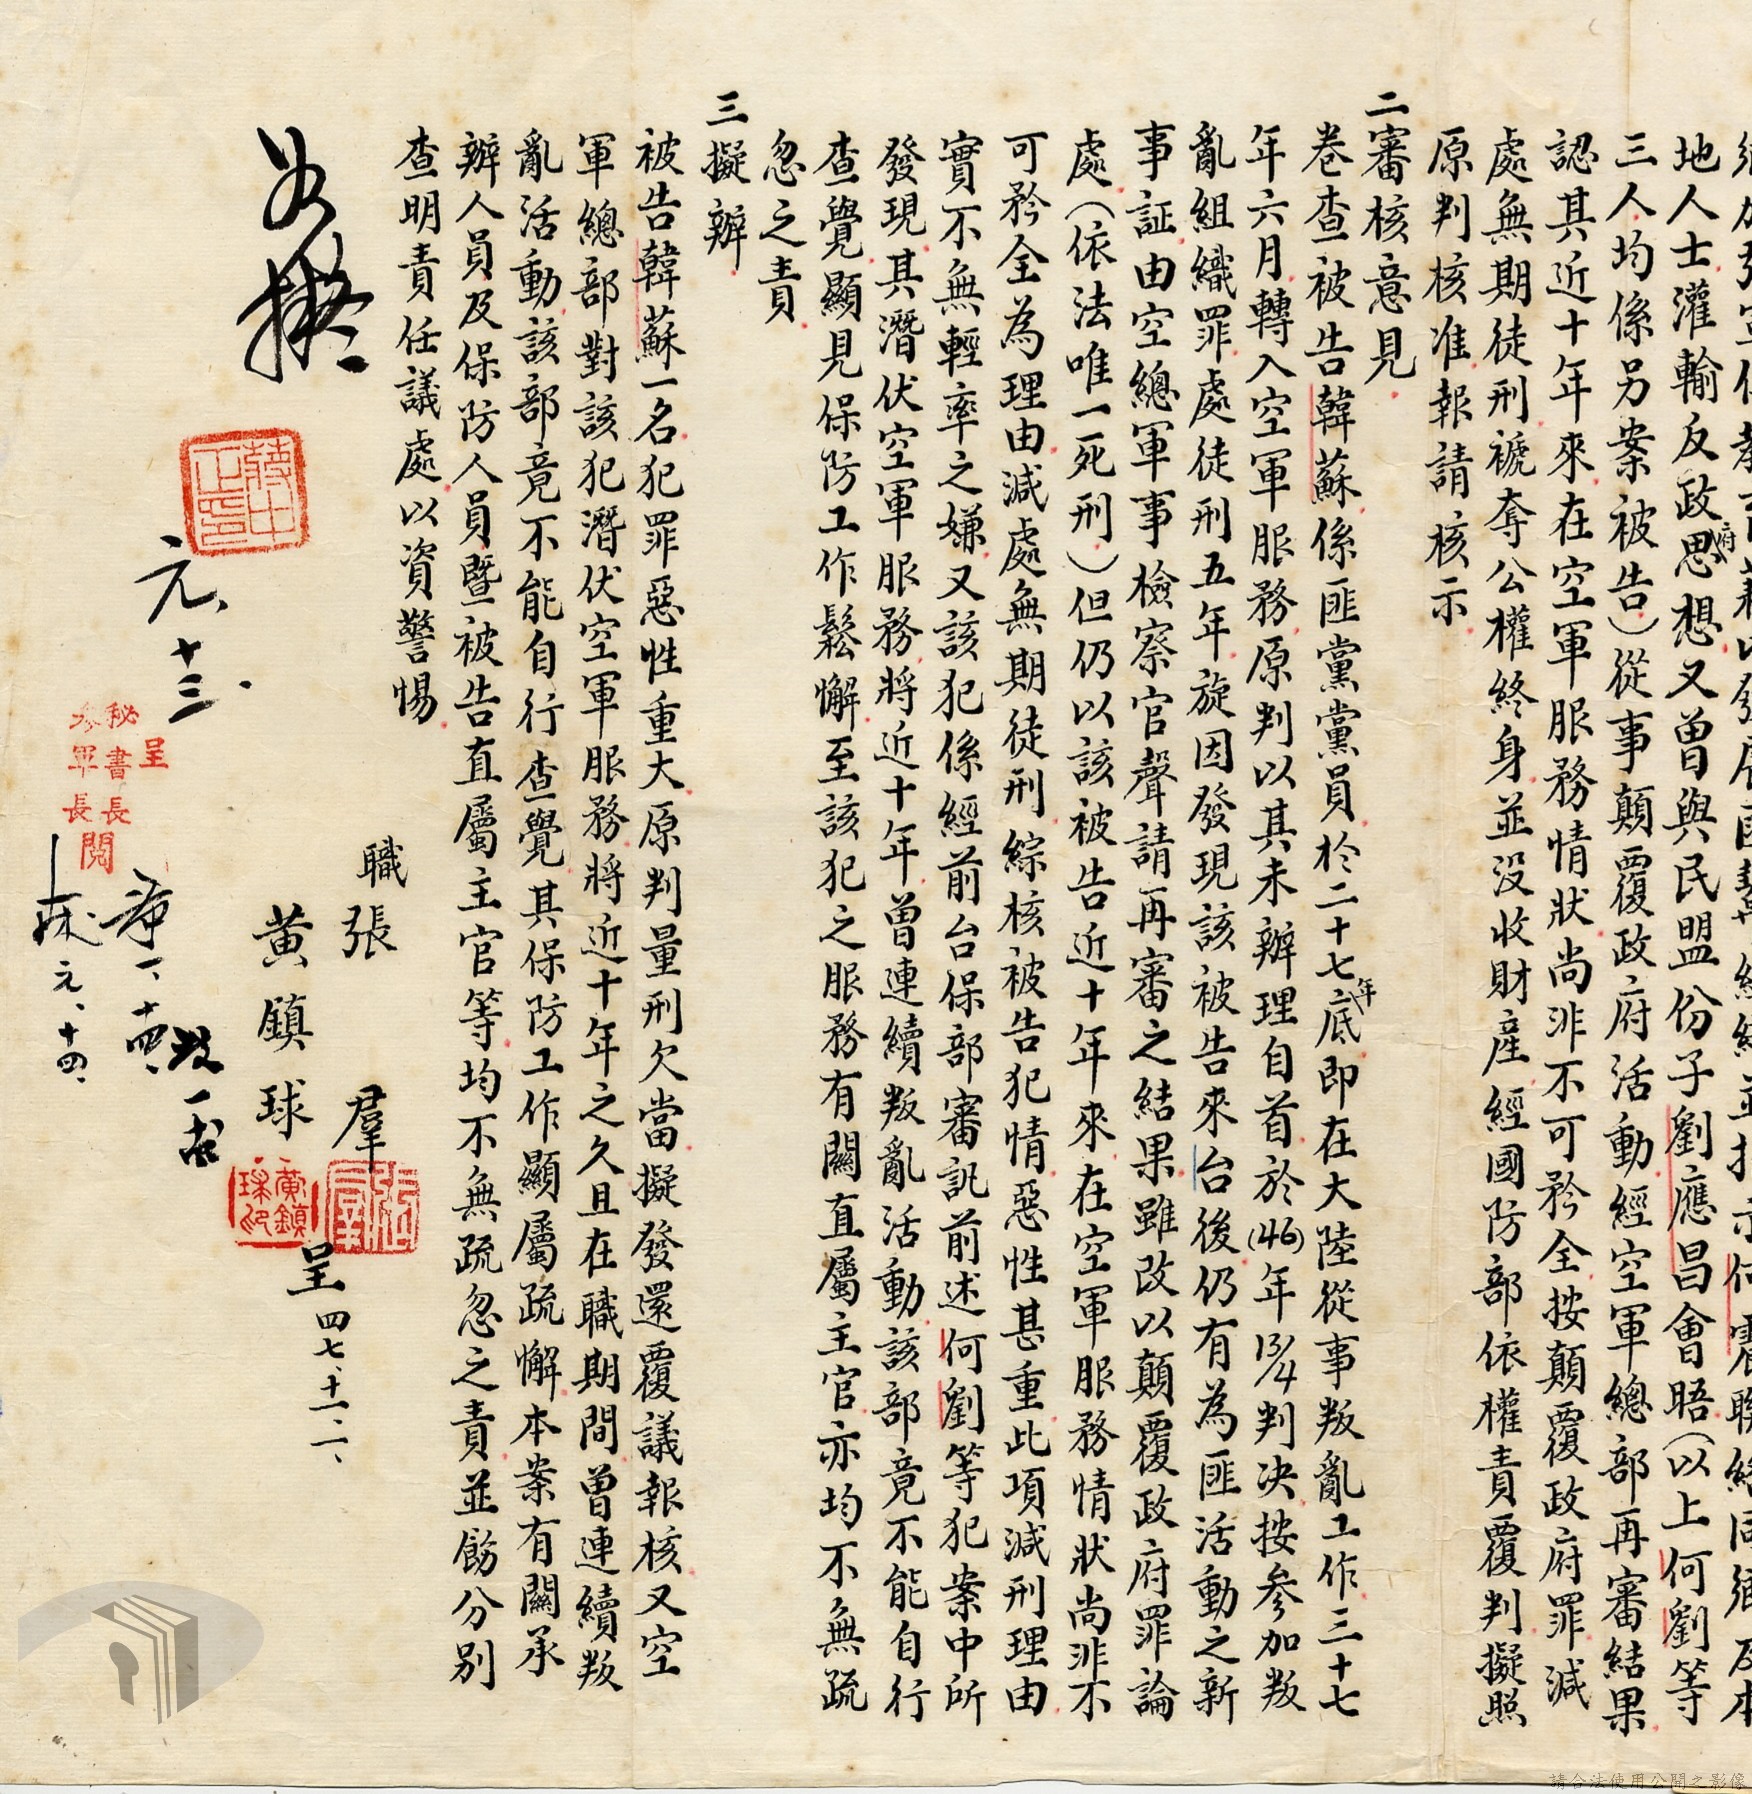 地人士灌輸反政府思想又曾與民盟份子劉應昌會晤（以上何劉等
三人均係另案被告）從事顛覆政府活動經空軍總部再審結果
認其近十年來在空軍服務情狀尚非不可矜全按顛覆政府罪減
處無期徒刑褫奪公權終身並没收財產經國防部依權責覆判擬照
原判核准報請核示
二審核意見
卷查被告韓蘇係匪黨黨員於二十七年底即在大陸從事叛亂工作三十七
年六月轉入空軍服務原判以其未辦理自首於(46)年13/4判决按參加叛
亂組織罪處徒刑五年旋因發現該被告來台後仍有為匪活動之新
事証由空總軍事檢察官聲請再審之結果雖改以顛覆政府罪論
處（依法唯一死刑）但仍以該被告近十年來在空軍服務情狀尚非不
可矜全為理由減處無期徒刑綜核被告犯情惡性甚重此項減刑理由
實不無輕率之嫌又該犯係經前台保部審訊前述何劉等犯案中所
發現其潛伏空軍服務將近十年曾連續叛亂活動該部竟不能自行
查覺顯見保防工作鬆懈至該犯之服務有關直屬主官亦均不無疏
忽之責
三擬辦
被告韓蘇一名犯罪惡性重大原判量刑欠當擬發還覆議報核又空
軍總部對該犯潛伏空軍服務將近十年之久且在職期間曾連續叛
亂活動該部竟不能自行查覺其保防工作顯屬疏懈本案有關承
辦人員及保防人員暨被告直屬主官等均不無疏忽之責並飭分別
查明責任議處以資警惕
職張羣
黃鎮球
呈四七、十二、二、
如擬
蔣中正印
元、十三、
呈
秘書長
參軍長
閱
一、十四、
元、十四、
張羣
黃鎮球印
請合法使用公開之影像